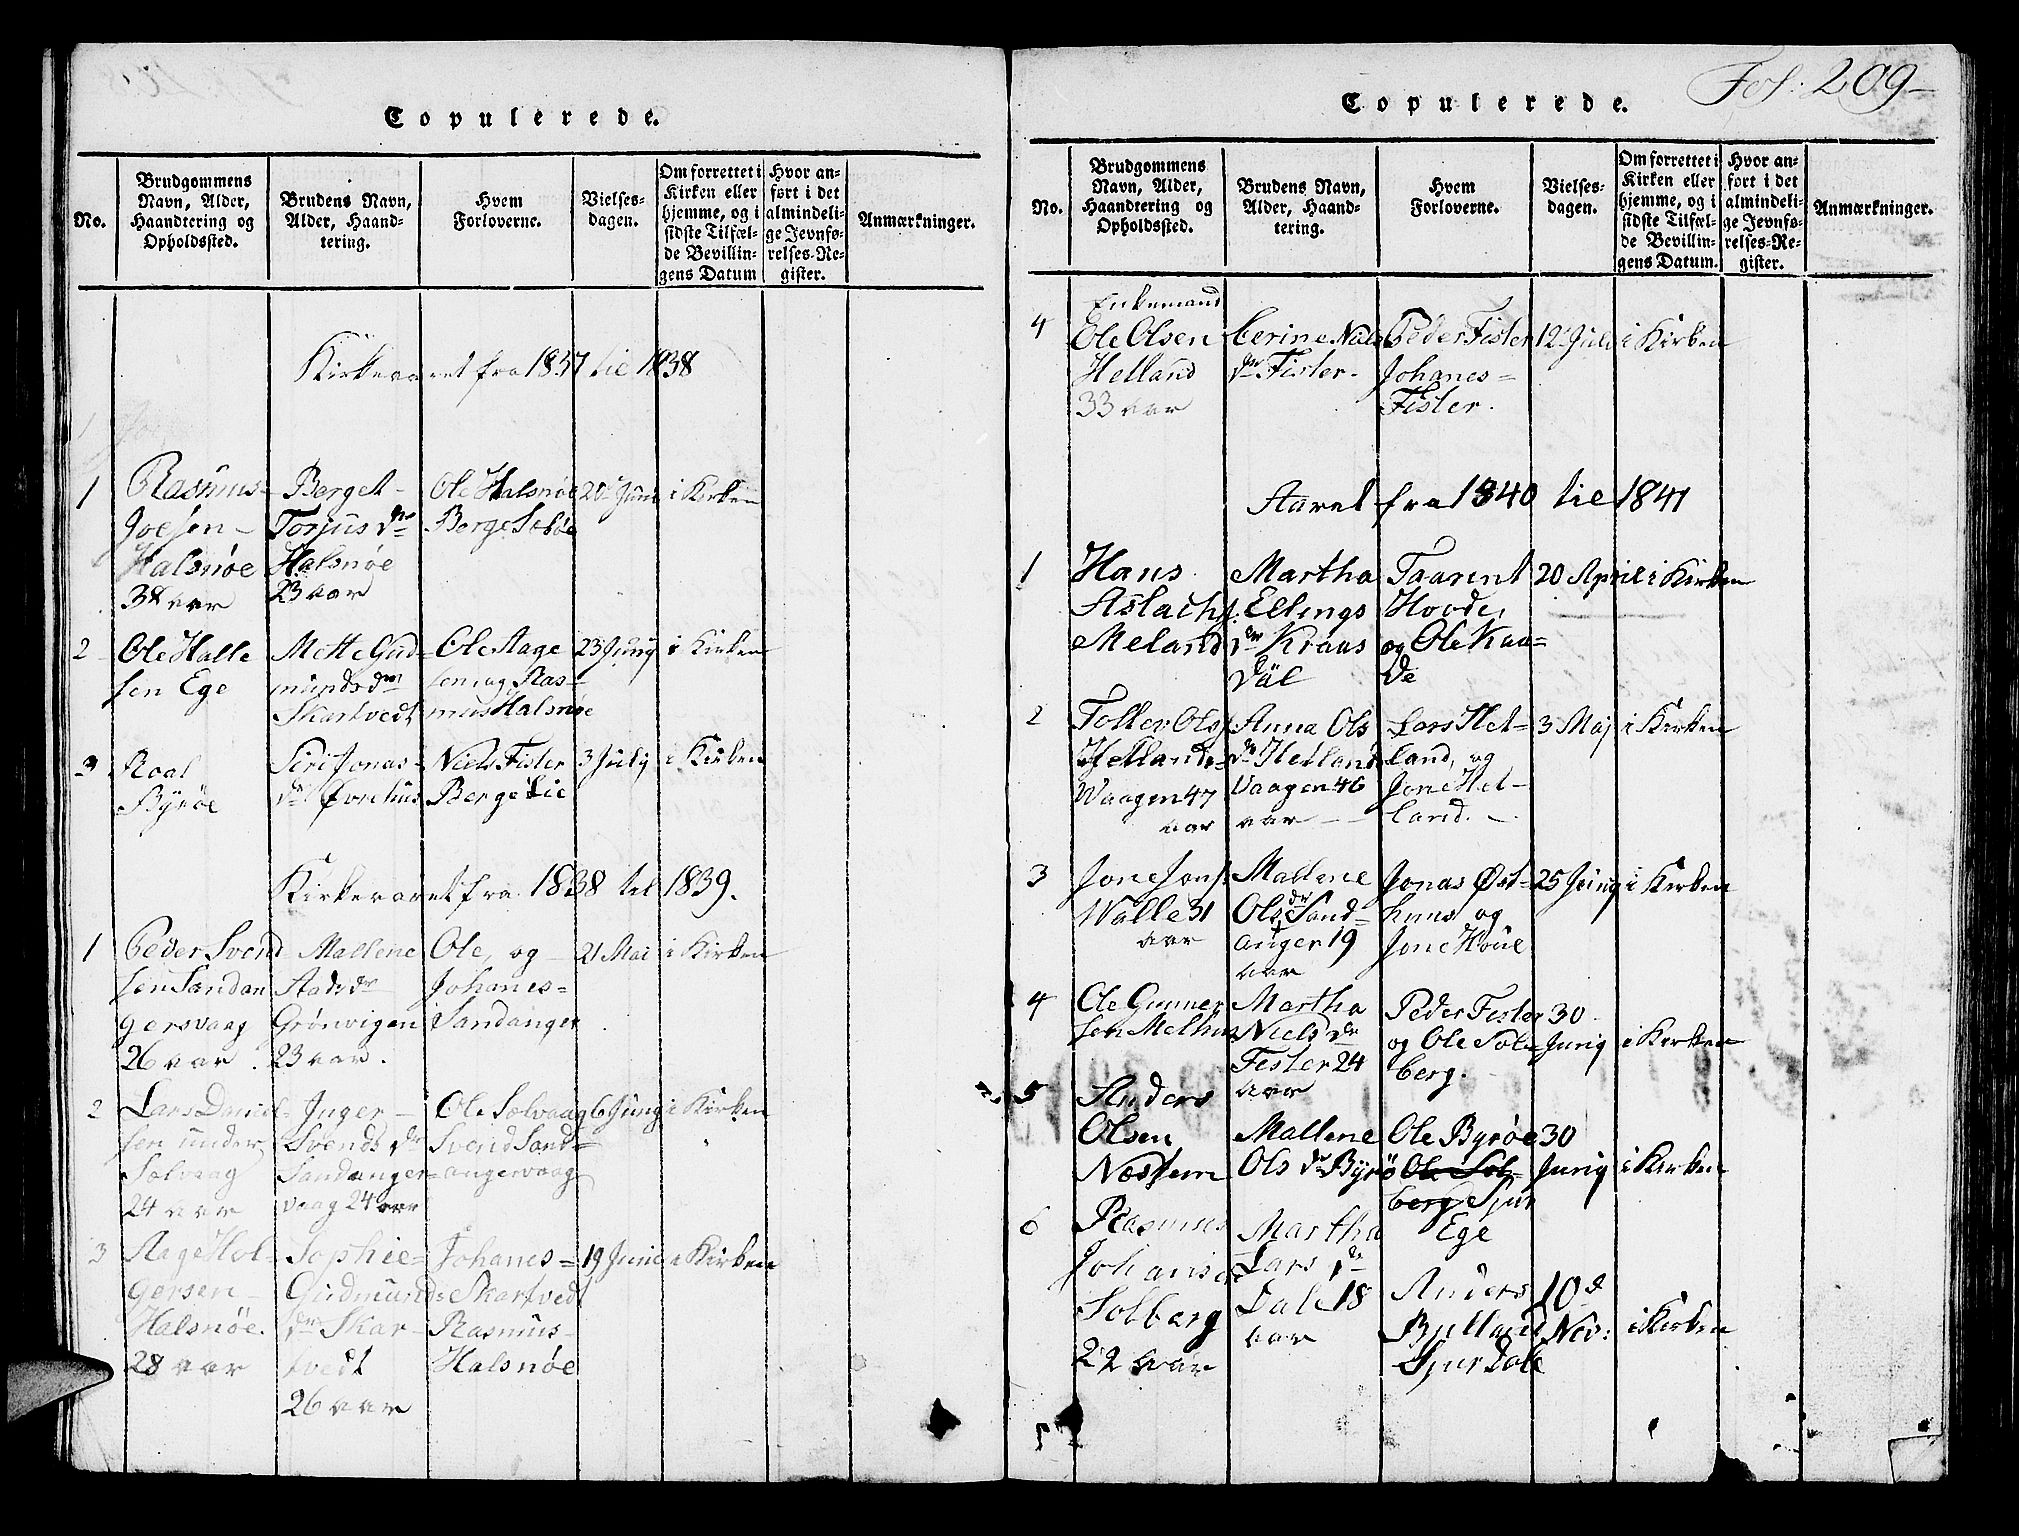 Copulerede.
No.
Brudgommens
Navn, Alder,
Haandtering og
Opholdssted.
Brudens Navn,
Alder, Haand-
tering.
Hvem
Forloverne.
Vielses-
dagen.
Om forrettet i
Kirken eller
hjemme, og i
sidste Tilfæl-
de Bevillin-
gens Datum
Hvor an-
ført i det
almindeli-
ge Jevnfø-
relses-Re-
gister.
Anmærkninger.
Kirkeaaret fra 1837 til 1838
1
Rasmus
Joesen
Halsnøe
38 aar
Berget
Torjus dr
Halsnøe
23 aar
Ole Halsnøe
Berge
20 Juni
i Kirken
2
Ole Halle
sen Ege
Mette Gud-
munds dr
Skartvedt
Ole Aage
sen og Ras-
mus Halsnøe
23 Junij
i Kirken
3
Roal
Byrøe
Siri Jonas-
dr
Niels Fister
Berge Lie
3 Julij
i Kirken
Kirkeaaret fra 1838 til 1839.
1
Peder Svend
sen Sandan
gersvaag
26 aar
Mallene
dr
Grönvigen
23 aar.
Ole, og
Johanes=
Sandanger
21 Mai
i Kirken
2
Lars Daniel-
sen under
Solvaag
24 aar
Inger
Svends dr
Sandanger-
vaag 24 aar
Ole Solvaag
Svend Sand=
angervaag
6 Junij
i Kirken
3
Aage Hol-
gersen
Halsnöe.
28 aar
Sophie
Gudmund-
dr Skar-
tvedt
26 aar
Johanes=
Skartvedt
Rasmus
Halsnøe
19 Junie
i Kirken
Copulerede.
Fol: 209-
No.
Brudgommens
Navn, Alder,
Haandtering og
Opholdssted.
Brudens Navn,
Alder, Haand-
tering.
Hvem
Forloverne.
Vielses-
dagen.
Om forrettet i
Kirken eller
hjemme, og i
sidste Tilfæl-
de Bevillin-
gens Datum.
Hvor an-
ført i det
almindeli-
ge Jevnfø-
relses-Re-
gister.
Anmærkninger.
4
Enkemand
Ole Olsen
Helland
33 aar
Cerine Niels
dr Fister.
Peder Fister
Johanes=
Fister.
12 Juli
i Kirken
Aaret fra 1840 til 1841
1
Hans
Aslachs.
Meland
Martha
Ellings
dr Kraas
dal
Taarent
Hovde,
og Ole Kaa=
de
20 April
i Kirken
2
Toller Ols.
Helland=
Waagen 47
aar
Anna Ols
dr Helland
Vaagen 46
aar
Lars Het-
land, og
Jone Het-
land.
3 Maj
i Kirken
3
Jone Jons.
Walle 31
aar
Mallene
Ols dr Sand=
anger 19
aar
Jonas Øst-
huus og
Jone Houe
25 Junij
i Kirken
4
Ole Gunner
sen Melhus
Martha
Niels dr
Fister 24
aar
Peder Fister
og Ole Sol-
berg.
30
Junij
i Kirken
5
Anders
Olsen
Næssem
Mallene
Ols dr Byrö
Ole Byrøe
Ole Sol-
berg Sjur
Ege
30
Junij
i Kirken
6
Rasmus
Johanse
Solberg
22 aar
Martha
Lars dr
Dale 18
aar
Anders
Sjur Dale
10d
Nov:
i Kirken